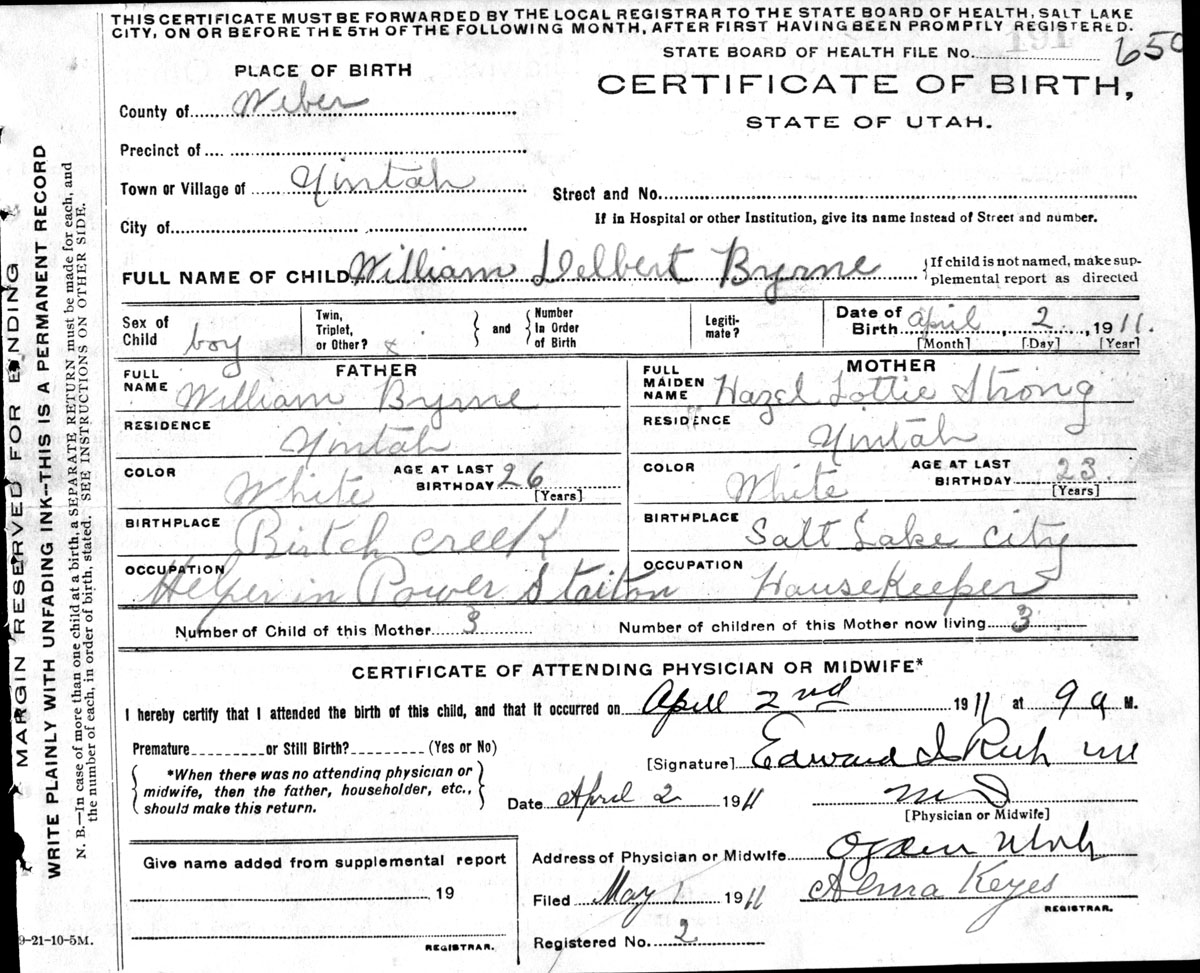 THIS CERTIFICATE MUST BE FORWARDED BY THE LOCAL REGISTRAR TO THE STATE BOARD OF HEALTH, SALT LAKE
CITY, ON OR BEFORE THE 5TH OF THE FOLLOWING MONTH, AFTER FIRST HAVING BEEN PROMPTLY REGISTERED.
STATE BOARD OF HEALTH FILE No. 191 650
PLACE OF BIRTH
CERTIFICATE OF BIRTH,
STATE OF UTAH.
County of Weber
Precinct of
Town or Village of Yintah
Street and No.
City of
If in Hospital or other Institution, give its name instead of Street and number.
FULL NAME OF CHILD William Delbert Byrne {If child is not named, make sup-
plemental report as directed
Sex of Child boy
Twin, Triplet, or Other? x } and { Number In Order of Birth
Legiti-mate?
Date of Birth April, 2, 1911.
[Month] [Day] [Year]
FATHER
MOTHER
FULL NAME William Byrne
FULL MAIDEN NAME Hazel Lottie Strong
RESIDENCE Yintah
RESIDENCE Yintah
COLOR White AGE AT LAST BIRTHDAY 26 [Years]
COLOR White AGE AT LAST BIRTHDAY 23 [Years]
BIRTHPLACE Birtch creek
BIRTHPLACE Salt Lake City
OCCUPATION Helper in Power Staiton
OCCUPATION Hausekeeper
Number of Child of this Mother 3
Number of children of this Mother now living 3
CERTIFICATE OF ATTENDING PHYSICIAN OR MIDWIFE*
I hereby certify that I attended the birth of this child, and that it occurred on April 2nd 1911 at 9 a M.
Premature or Still Birth? (Yes or No)
[Signature] Edward I Rich
{ *When there was no attending physician or
midwife, then the father, householder, etc.,
should make this return. }
Date April 2 1911
M D
[Physician or Midwife]
Give name added from supplemental report
19
REGISTRAR.
Address of Physician or Midwife Ogden Utah
Filed May 1 1911 Alma Keyes
REGISTRAR.
Registered No. 2
9-21-10-5M.
A MARGIN RESERVED FOR BINDING
WRITE PLAINLY WITH UNFADING INK--THIS IS A PERMANENT RECORD
N. B.—In case of more than one child at a birth, a SEPARATE RETURN must be made for each, and
the number of each, in order of birth, stated. SEE INSTRUCTIONS ON OTHER SIDE.